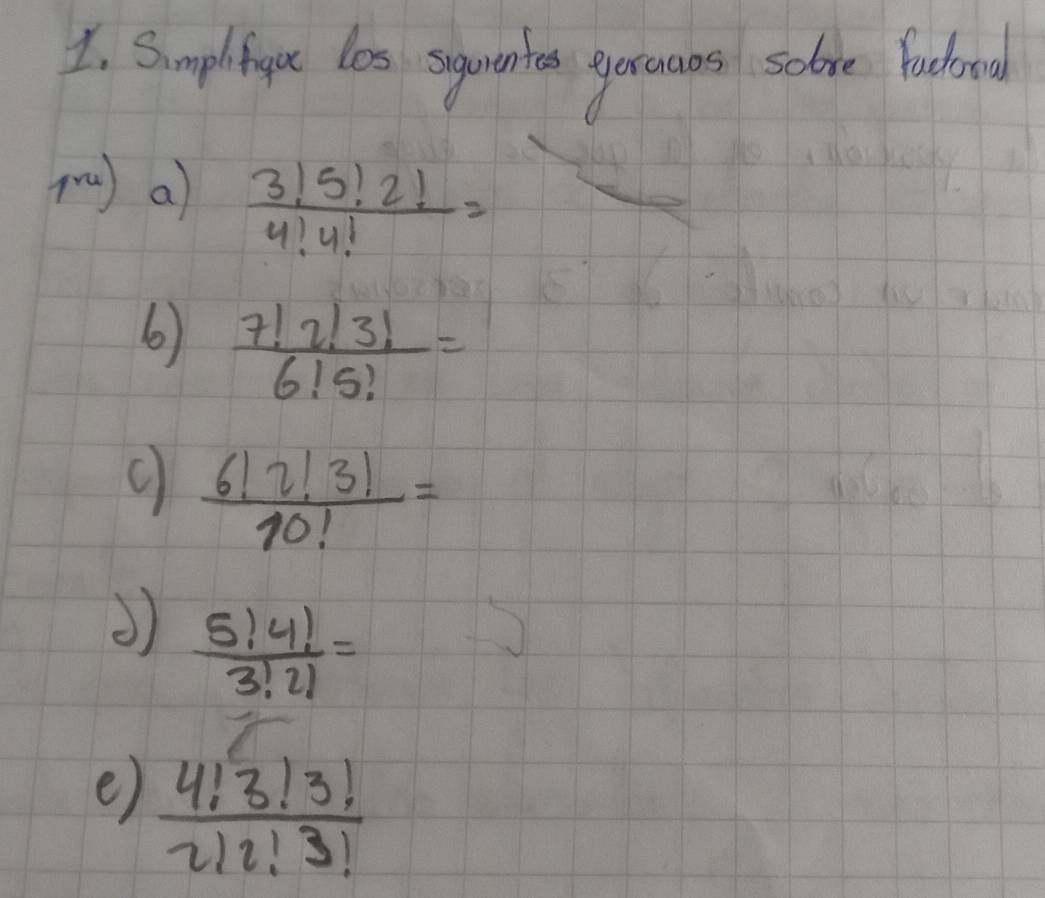 1. Simplifique los siguientes gercicios sobre factorial
a) 3! 5! 2! / 4! 4! =
b) 7! 2! 3! / 6! 5! =
c) 6! 2! 3! / 10! =
d) 5! 4! / 3! 2! =
e) 4! 3! 3! / 2! 2! 3!